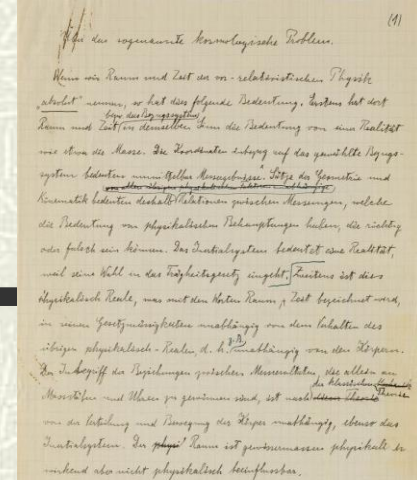 (1)
Über das sogenannte kosmologische Problem.
Wenn wir Raum und Zeit der vor-relativistischen Physik
„absolut" nennen, so hat dies folgende Bedeutung. Erstens hat dort
bezw. das Bezugssystem
Raum und Zeit in demselben Sinn die Bedeutung von einer Realität
wie etwa die Masse. Die Koordinaten in bezug auf das gewählte Bezugs-
system bedeuten unmittelbar Messergebnisse. Sätze der Geometrie und
Kinematik bedeuten deshalb Relationen zwischen Messungen, welche
die Bedeutung von physikalischen Behauptungen haben, die richtig
oder falsch sein können. Das Inertialsystem bedeutet eine Realität,
weil seine Wahl in das Trägheitsgesetz eingeht. Zweitens ist dies
Physikalisch Reale, was mit den Worten Raum, Zeit bezeichnet wird,
in seinen Gesetzmässigkeiten unabhängig von dem Verhalten des
übrigen physikalisch-Realen, d. h. z.B. unabhängig von den Körpern.
Der Inbegriff der Beziehungen zwischen Messresultaten, das allein an
Massstäben und Uhren zu gewinnen sind, ist nach der klassischen Theorie
von der Verteilung und Bewegung der Körper unabhängig, ebenso das
Inertialsystem. Der Raum ist gewissermassen physikalisch
wirkend aber nicht physikalisch beeinflussbar.